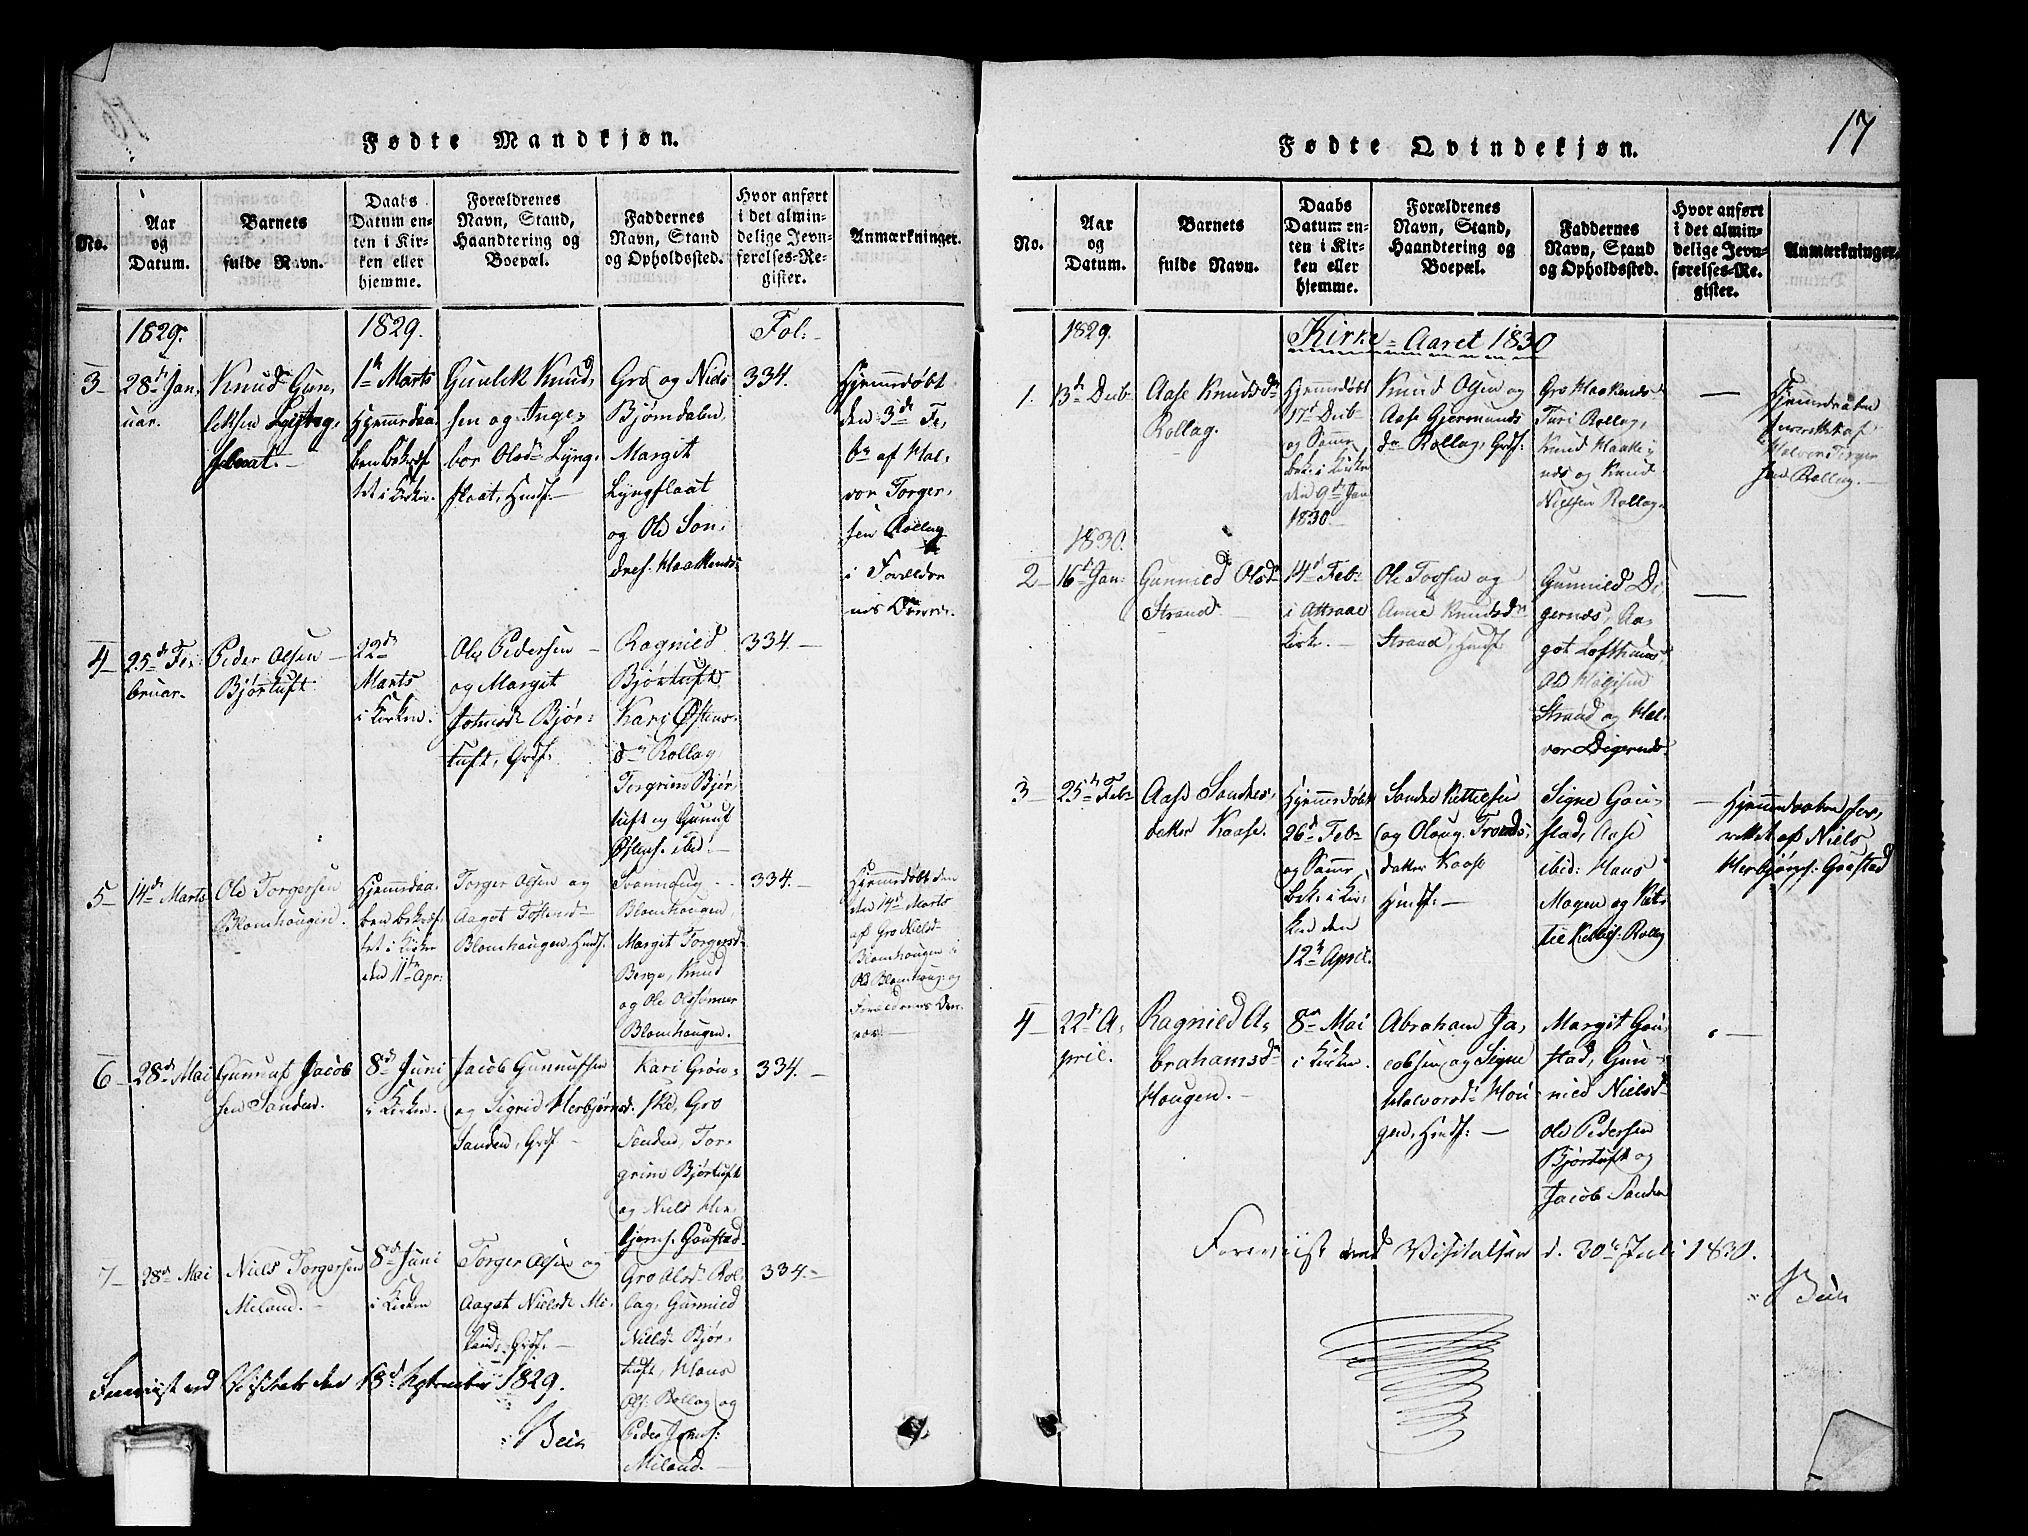 Fødte Mandkjøn.
No.
Aar
og
Datum.
Barnets
fulde Navn.
Daabs
Datum en-
ten i Kir-
ken eller
hjemme.
Forældrenes
Navn, Stand,
Haandtering og
Boepæl.
Faddernes
Navn, Stand
og Opholdssted.
Hvor anført
i det almin-
delige Jevn-
førelses-Re-
gister.
Anmærkninger.
1829.
1829.
Fol:
3
28de Jan,
uar.
Knud Gun,
leksen
1te Marts
Hjemmedaa,
ben bekræf
tet i Kirken.
Gunlek Knud,
sen og Inge,
bor Olsdr Lyng,
flaat, Huusf. —
Gro og Niels
Bjørndalen,
Margit
Lyngflaat
og Ole Son,
dres. Haakenæs
334.
Hjemmedøbt
den 3de Fe,
br af Hal,
vor Torger,
sen Rollag
i Forældre
nes Nærvær.
4
25de Fe,
bruar.
Peder Olsen —
Bjørtuft
22de
Marts
i Kirken.
Ole Pedersen —
og Margit
Johnsdr Bjør-
tuft, Grdf.
Ragnild
Bjørtuft
Kari Østens,
dr Rollag
Torgrim Bjør
tuft og Gunuf
Østens. ibd. —
334. —
5
14de Marts
Ole Torgersen
Blomhougen.
Hjemmedaa,
ben bekræf
tet i Kirken
den 11te Apr:
Torger Olsen og
Aagot Tostensdr
Blomhaugen, Huusf.
Svanoug —
Blomhaugen,
Margit Torgersd
Berge, Knud
og Ole Olssønner
Blomhaugen.
334. —
Hjemmedøbt den
den 14de Marts
af Gro Nielsdr
Blomhougen i
Ole Blomhoug: og
Forældrenes Nær
vær. —
6
28de Mai
Gunnuf Jacob
sen Sanden.
8de Juni
i Kirken.
Jacob Gunnufsen
og Sigrid Herbjørnsd.
Sanden, Grdf. —
Kari Grøn,
ske, Gro
Sanden, Tor-
grim Bjørtuft
og Niels Her
bjørns. Goustad
334. —
7
28de Mai
Niels Torgersen
Miland. —
8de Juni
i Kirken
Torger Olsen og
Aagot Nielsdr Mi,
land, Grdf. —
Gro Olsdr Rol,
lag, Gunnild
Nielsdr Bjør-
tuft, Hans
Ols. Rollag og
Peder Johns:
Miland. —
334. —
Foreviist ved Visitats den 18de September 1829.
Bein
17
Fødte Qvindekjøn.
No.
Aar
og
Datum.
Barnets
fulde Navn.
Daabs
Datum en-
ten i Kir-
ken eller
hjemme.
Forældrenes
Navn, Stand,
Haandtering og
Boepæl.
Faddernes
Navn, Stand
og Opholdssted.
Hvor anført
i det almin-
delige Jevn-
førelses-Re-
gister.
Anmærkninger.
1829.
Kirke-Aaret 1830
1.
13de Decb
Aase Knudsdr
Rollag.
Hjemmedøbt
17de Decb
og Samme
bek. i Kirken
den 9de Jan
1830. —
Knud Olsen og
Aase Gjermunds
dr Rollag, Grdf:
Gro Haakenæs
Turi Rollag,
Knud Haake,
næs og Knud
Nielsen Rollag.
—
Hjemmedaaben
forrettet af
Halvor Torger
sen Rollag. —
1830.
2
16de Jan:
Gunnild Olsdr
Strand. —
14de Feb:
i Attraae
Kirke. —
Ole Tovsen og
Anne Knudsdr
Strand, Huusf:
Gunnild Di
gernæs, Aa,
got Lofthuus
Ole Helgesen
Strand og Hal,
vor Digernæs
—
3
25de Feb:
Aase Sondres,
datter Kaase.
Hjemmedøbt
26de Feb:
og Samme
bek. i Kir,
ken den
12te April.
Sondre Kittilsen
og Oloug Tronds,
datter Kaase
Huusf: —
Signe Gou,
stad, Aase
ibid: Hans
Mogen og Kit,
til Kittils: Rollag
—
Hjemmedaaben for,
rettet af Niels
Herbjørns: Goustad
4
22de A,
pril.
Ragnild A,
brahamsdr
Hougen. —
8de Mai
i Kirken.
Abraham Ja,
cobsen og Signe
Halvorsdr Hou
gen, Huusf: —
Margit Gou,
stad, Gun,
nild Nielsdr
Ole Pedersen
Bjørtuft og
Jacob Sanden
—
Foreviist ved Visitatsen d. 30te Juli 1830.
Bein